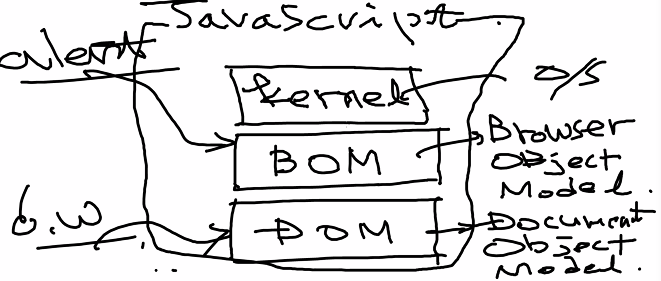 JavaScript
alert
kernel
O/S
BOM
Browser
Object
Model.
d.w
DOM
Document
Object
Model.